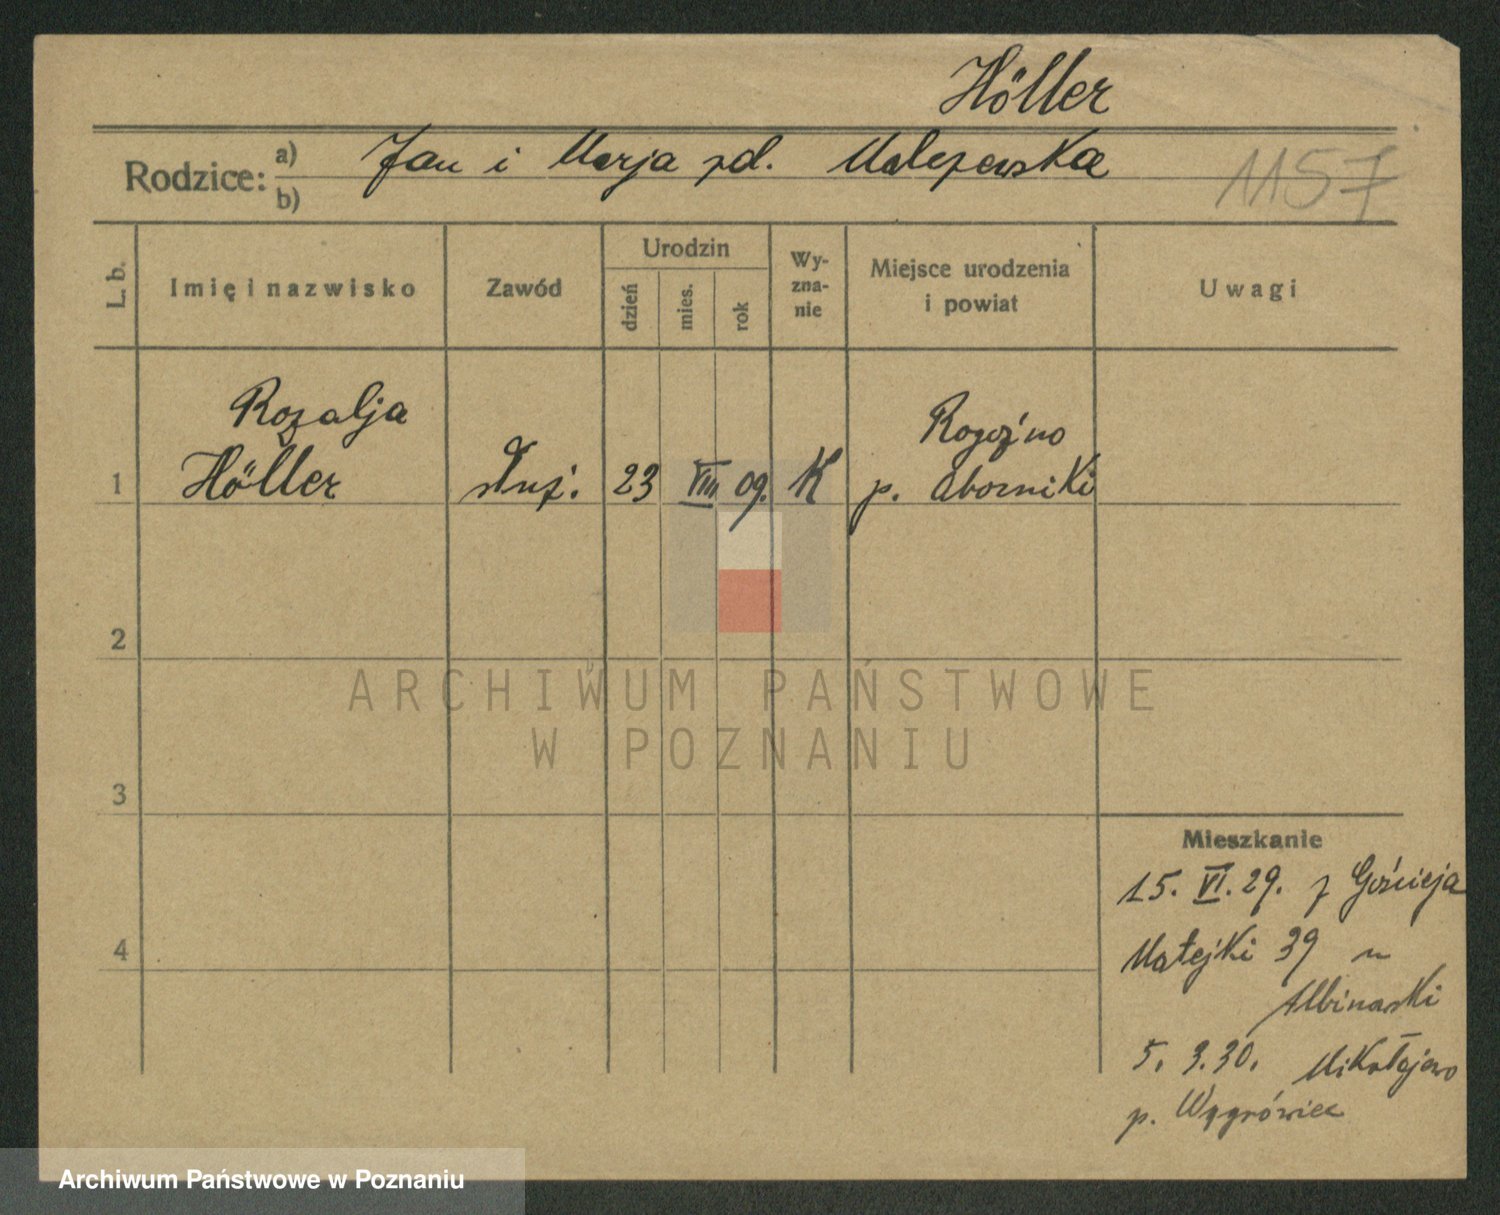 Höller
Rodzice: a) Jan i Marja zd. Malczewska
b)
1157
L. b.
Imię i nazwisko
Zawód
Urodzin
dzień
mies.
rok
Wy-
zna-
nie
Miejsce urodzenia
i powiat
Uwagi
Rozalja
Höller
1
służ.
23
VIII
09.
K
Rogoźno
p. Oborniki
2
ARCHIWUM PAŃSTWOWE
W POZNANIU
3
Mieszkanie
15. VI. 29. z Gościeja
4
Matejki 39 u
Albinowski
5. 3. 30. Mikołajewo
p. Wągrówiec
Archiwum Państwowe w Poznaniu